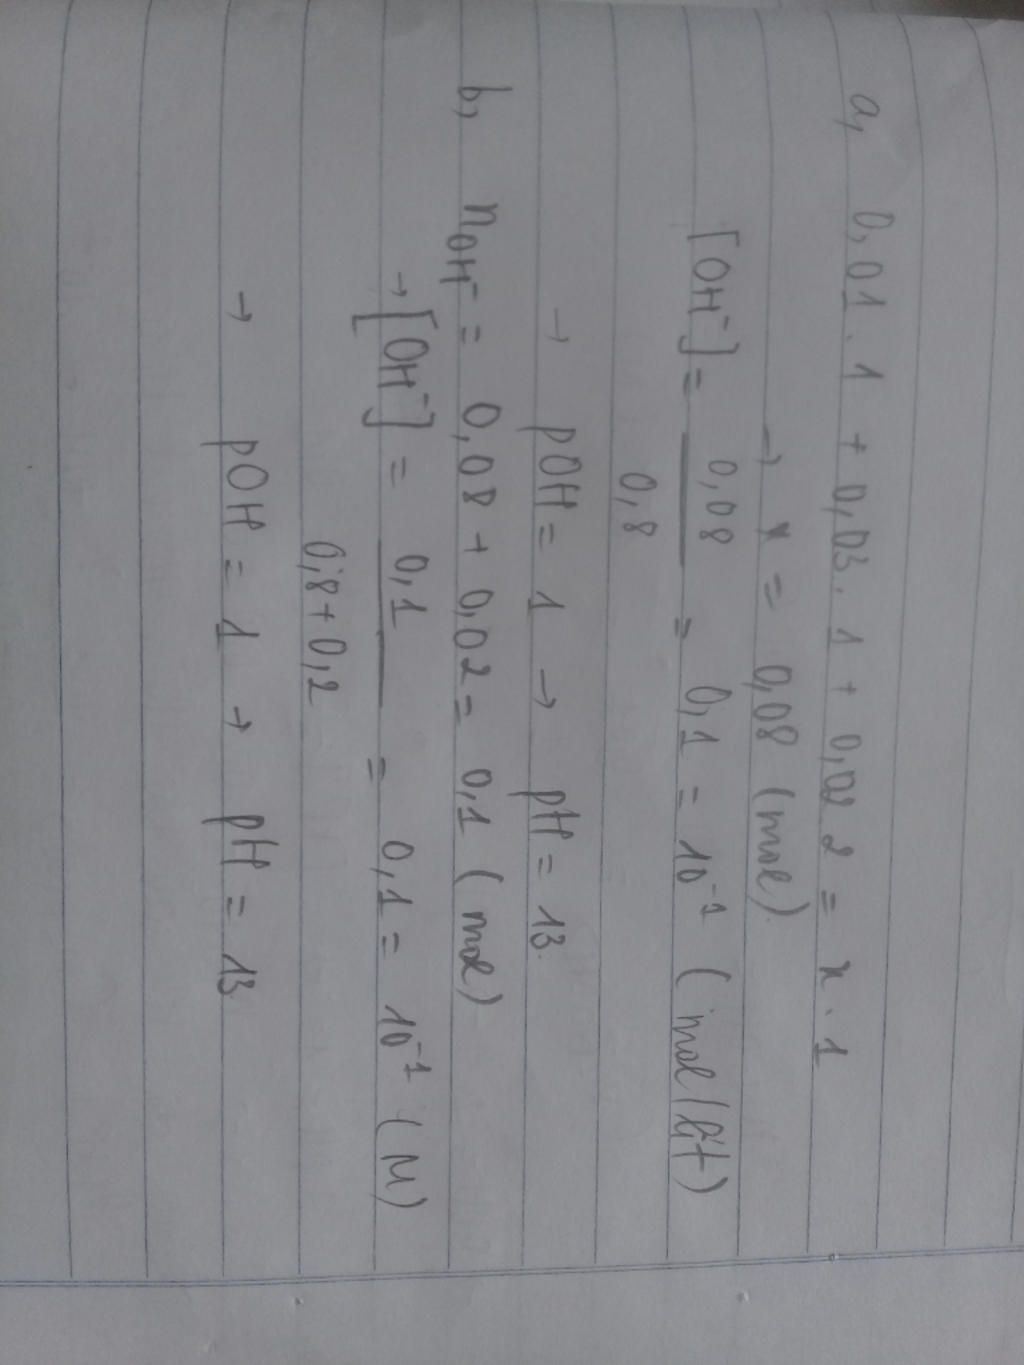 a, 0,01 . 1 + 0,03 . 1 + 0,02 2 = x . 1
→ x = 0,08 (mol).
[OH⁻] = 0,08 / 0,8 = 0,1 = 10⁻¹ (mol/lit)
→ pOH = 1 → pH = 13.
b, nOH⁻ = 0,08 + 0,02 = 0,1 (mol)
→ [OH⁻] = 0,1 / 0,8 + 0,2 = 0,1 = 10⁻¹ (M)
→ pOH = 1 → pH = 13